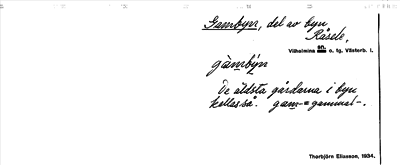 Gambyn, del av byn
Råsele,
Vilhelmina sn. o. tg. Västerb. l.
gàmbýn
De äldsta gårdarna i byn
kallas så. gam- = gammal-.
Thorbjörn Eliasson, 1934.